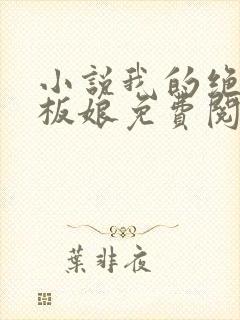 小說我的绝
板娘免費閱
葉非夜